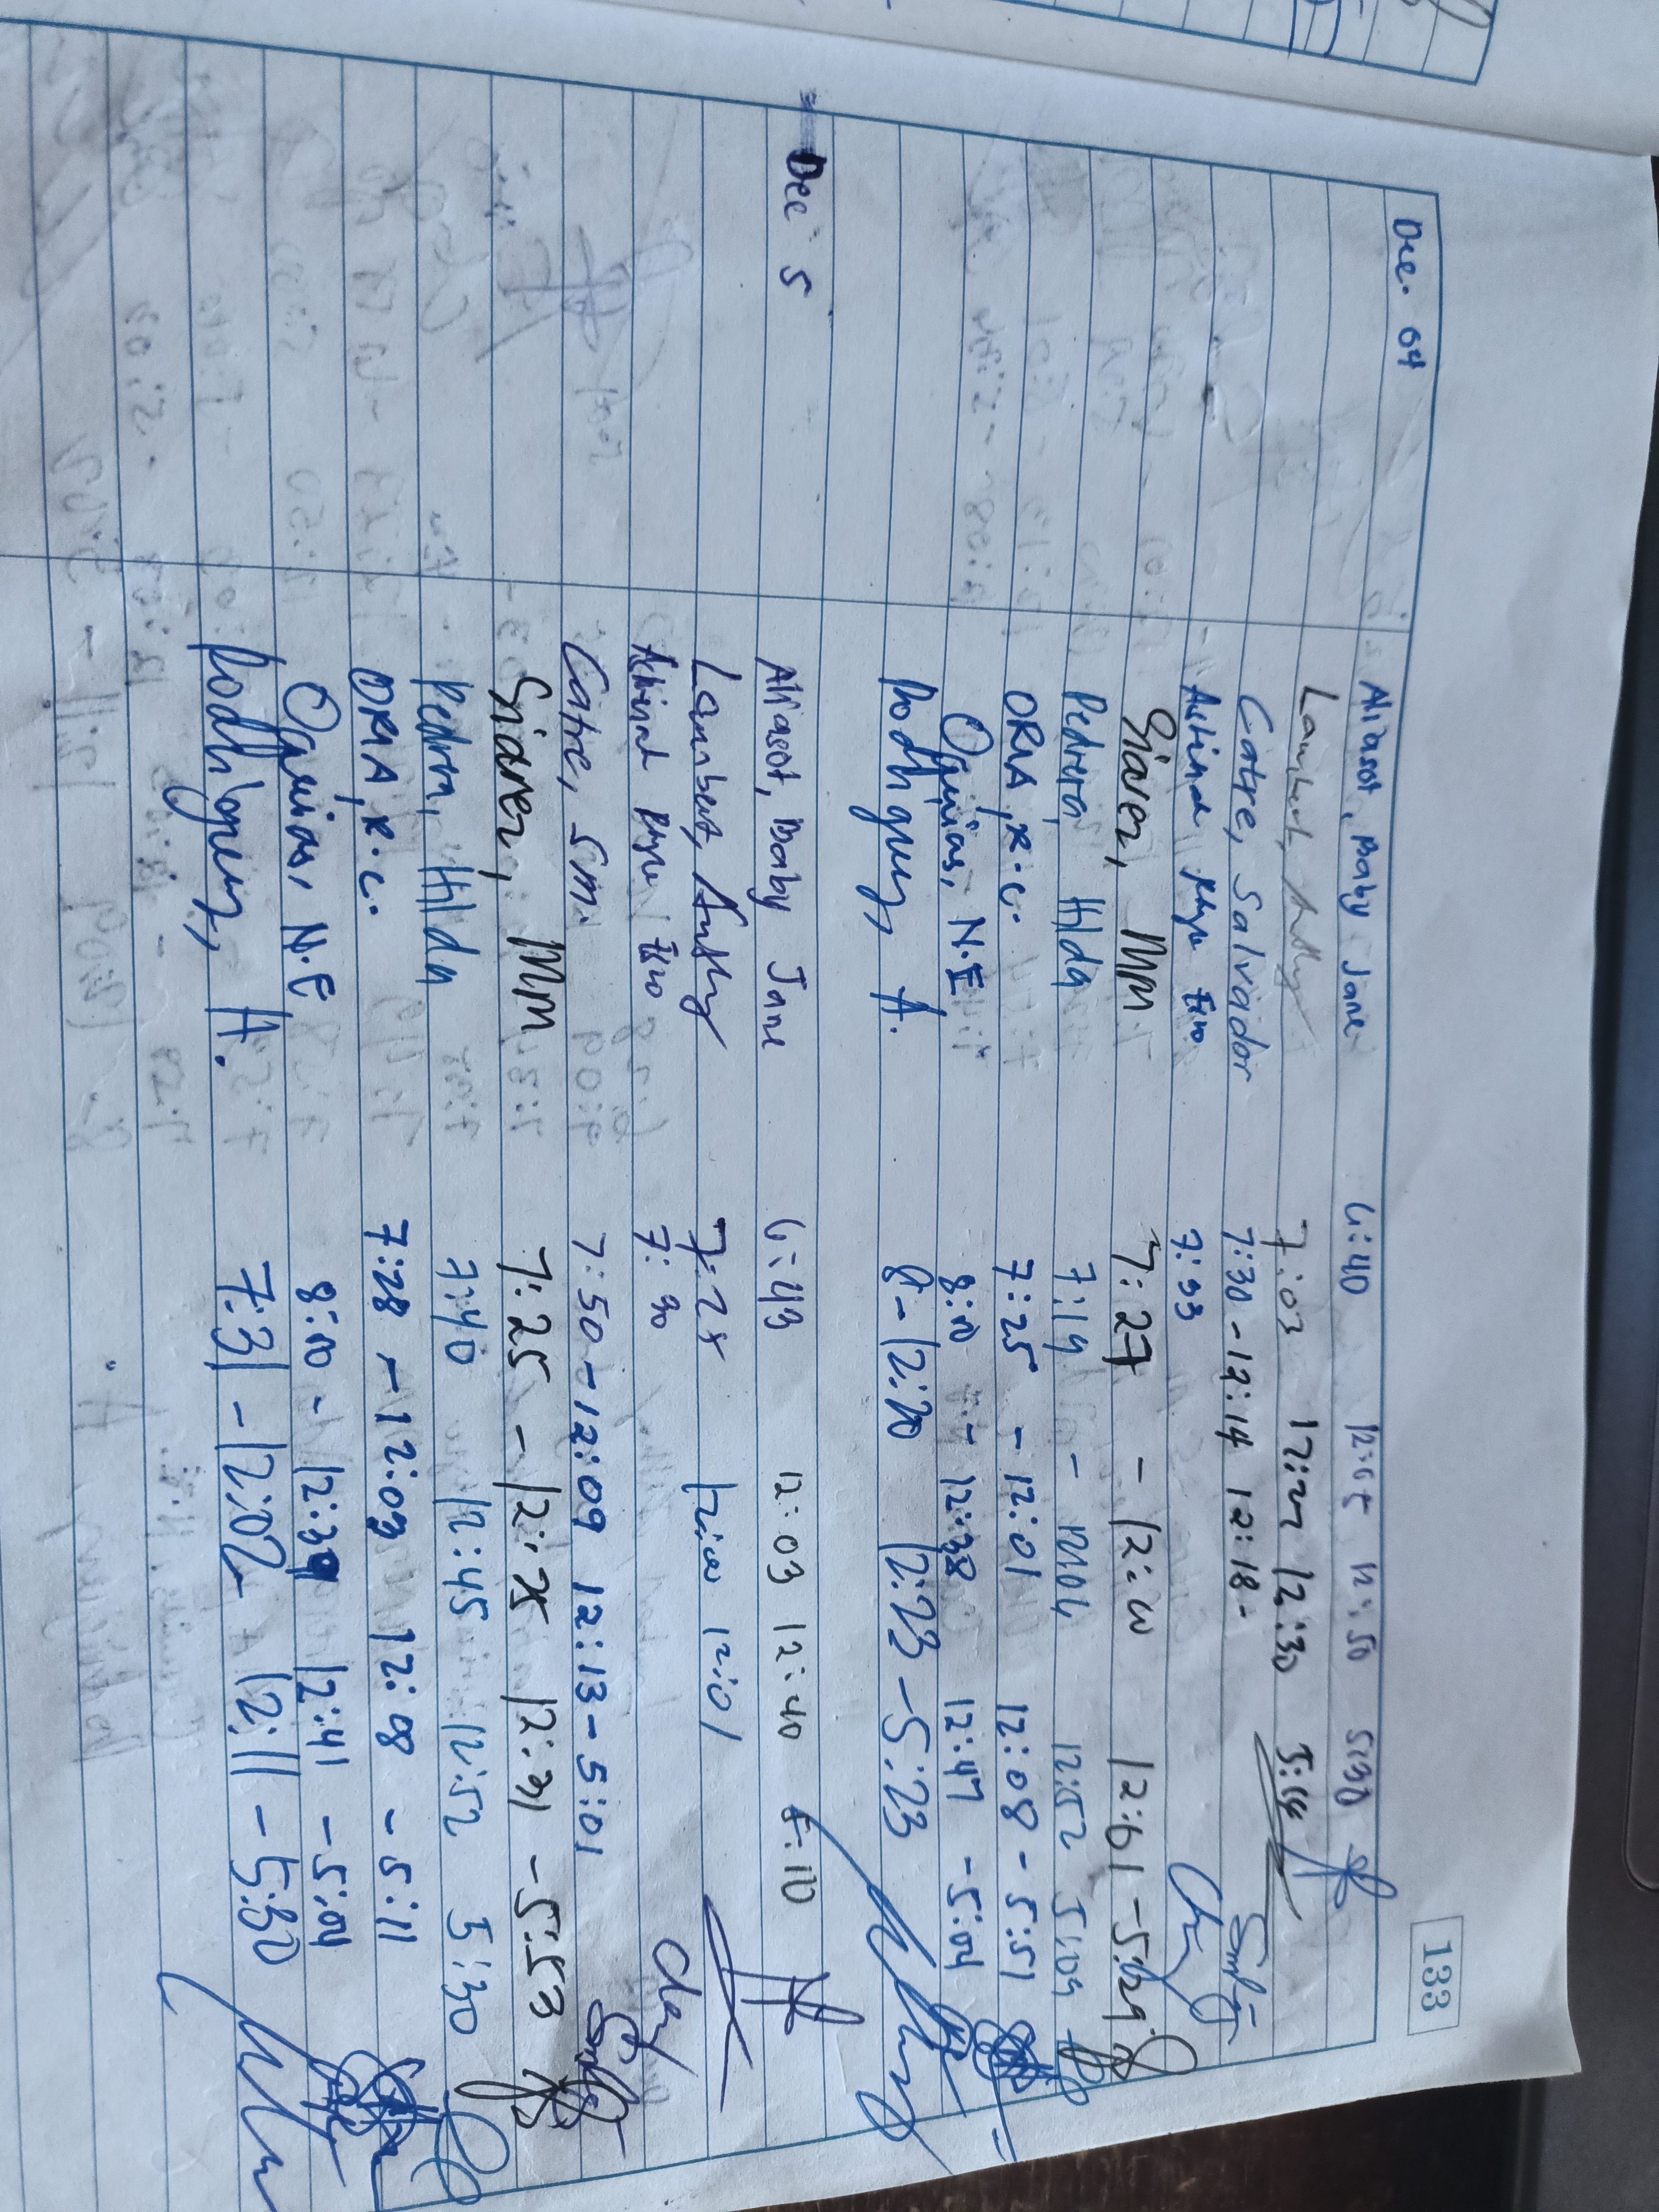 133
Dec. 04
Aliasot, Baby Jane 6:40 12:05 12:50 5:30
Lambert, 7:03 12:27 12:30 5:14
Catre, Salvador 7:30 - 12:14 12:18 -
7:33
Siarez, MM 7:27 - 12: 12:01 - 5:29
Pedrera, Hilda 7:19 - 12:04 12:52 5:09
ORIA, R.C. 7:25 - 12:01 12:08 - 5:51
N.E 8:10 - 12:38 12:47 - 5:04
Rodriguez, A. 8 - 12:20 12:23 - 5:23
Dec 5
Aliasot, Baby Jane 6:43 12:03 12:40 5:10
Lambert, 7:25 12:00 12:01
7:30
Catre, Sm. 7:50 - 12:09 12:13 - 5:01
Siarez, MM 7:25 - 12:25 12:31 - 5:53
Pedrera, Hilda 7:40 12:45 12:52 5:30
ORIA, R.C. 7:28 - 12:03 12:08 - 5:11
N.E 8:10 - 12:39 12:41 - 5:04
Rodriguez, A. 7:31 - 12:02 12:11 - 5:30